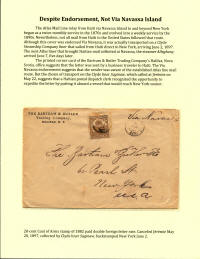 Despite Endorsement, Not Via Navassa Island
The Atlas Mail Line relay from Haiti via Navassa Island to and beyond New York
began as a twice-monthly service in the 1870s and evolved into a weekly service by the
1890s. Nevertheless, not all mail from Haiti to the United States followed that route.
Although this cover was endorsed Via Navassa, it was actually transported on a Clyde
Steamship Company liner that sailed from Haiti direct to New York, arriving June 2, 1897.
The next Atlas liner that brought Haitian mail collected at Navassa, the steamer
arrived June 7, five days later.
The printed corner card of the Bartram & Butler Trading Company's Halifax, Nova
Scotia, office suggests that the letter was sent by a business traveler in Haiti. The Via
Navassa endorsement suggests that the sender was aware of the established Atlas line mail
route. But the choice of transport on the Clyde liner Saginaw, which called at Jérémie on
May 22, suggests that a Haitian postal dispatch clerk recognized the opportunity to
expedite the letter by putting it aboard a vessel that would reach New York sooner.
THE BARTRAM & BUTLER
TRADING COMPANY
HALIFAX, N. S.
Via Navassa
Pearl St
New York
USA
20-cent Coat of Arms stamp of 1882 paid double foreign rate. Canceled Jérémie May
20, 1897, collected by Clyde liner Saginaw, backstamped New York June 2.